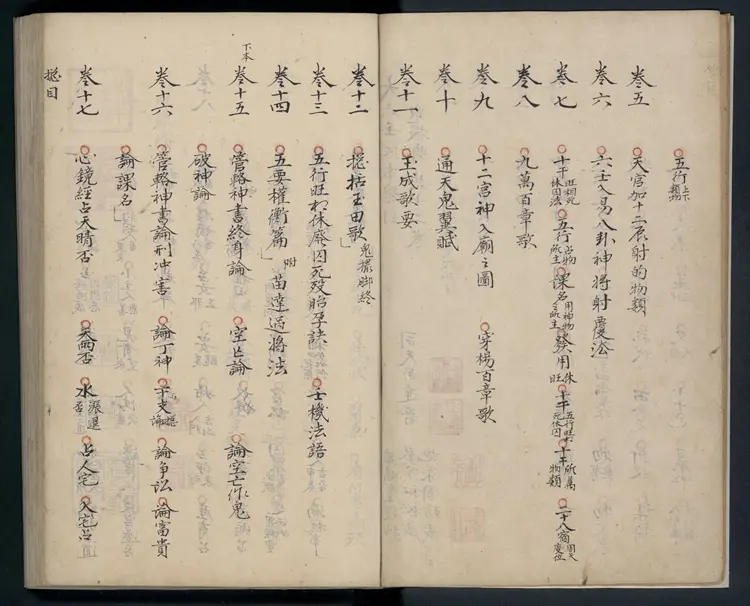 五行 上下 類物
卷五 天官加十二辰射的物類
卷六 六壬入易八卦神將射覆訟
卷七 十干 旺相死休囚法 五行 占物所主 課名 用神物之所主 發用 休旺 十干 五行旺相死休囚 十干 所屬物類 二十八宿 周天度位
卷八 九萬百章歌
卷九 十二宮神入廟之圖 穿楊百章歌
卷十 通天鬼翼賦
卷十一 玉成歌要
卷十二 捴括玉田歌 鬼撮脚終
卷十三 五行旺相休廢囚死歿胎孕 士機法語
卷十四 五要權衡篇 附 苗達過將法
下本
卷十五 管輅神書終身論 空亡論 論空亡作鬼
破神論
卷十六 管輅神書論刑冲害 論丁神 十支 論 論爭訟 論富貴
論課名
卷十七 心鏡經占天晴否 天雨否 水 漲退否 占人宅 入宅占
捴目